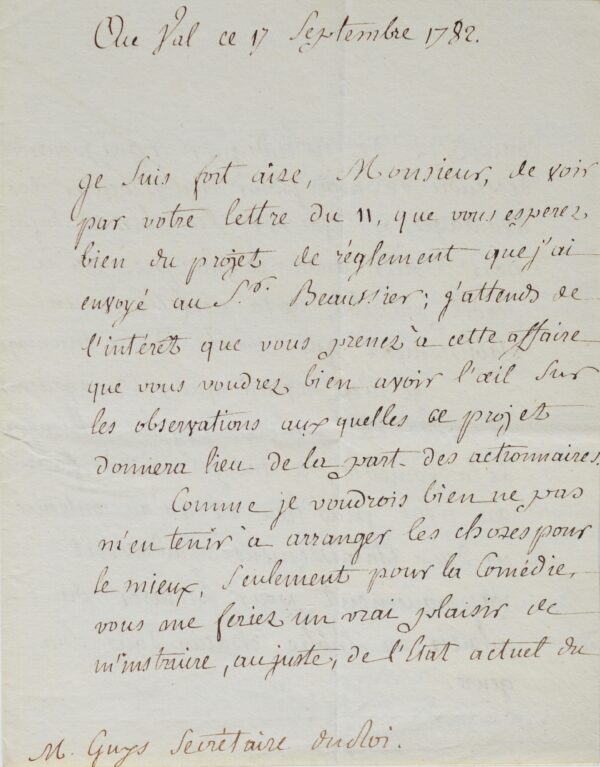 Au Val ce 17 Septembre 1782.
je suis fort aize, Monsieur, de voir
par votre lettre du 11, que vous esperez
bien du projet de réglement que j'ai
envoyé au Sr. Beaussier; j'attends de
l'intérêt que vous prenez à cette affaire
que vous voudrez bien avoir l'œil sur
les observations auxquelles ce projet
donnera lieu de la part des actionnaires.
Comme je voudrois bien ne pas
m'en tenir à arranger les chozes pour
le mieux, seulement pour la Comédie,
vous me feriez un vrai plaisir de
m'instruire, au juste, de l'Etat actuel du
M. Guys Secrétaire du Roi.